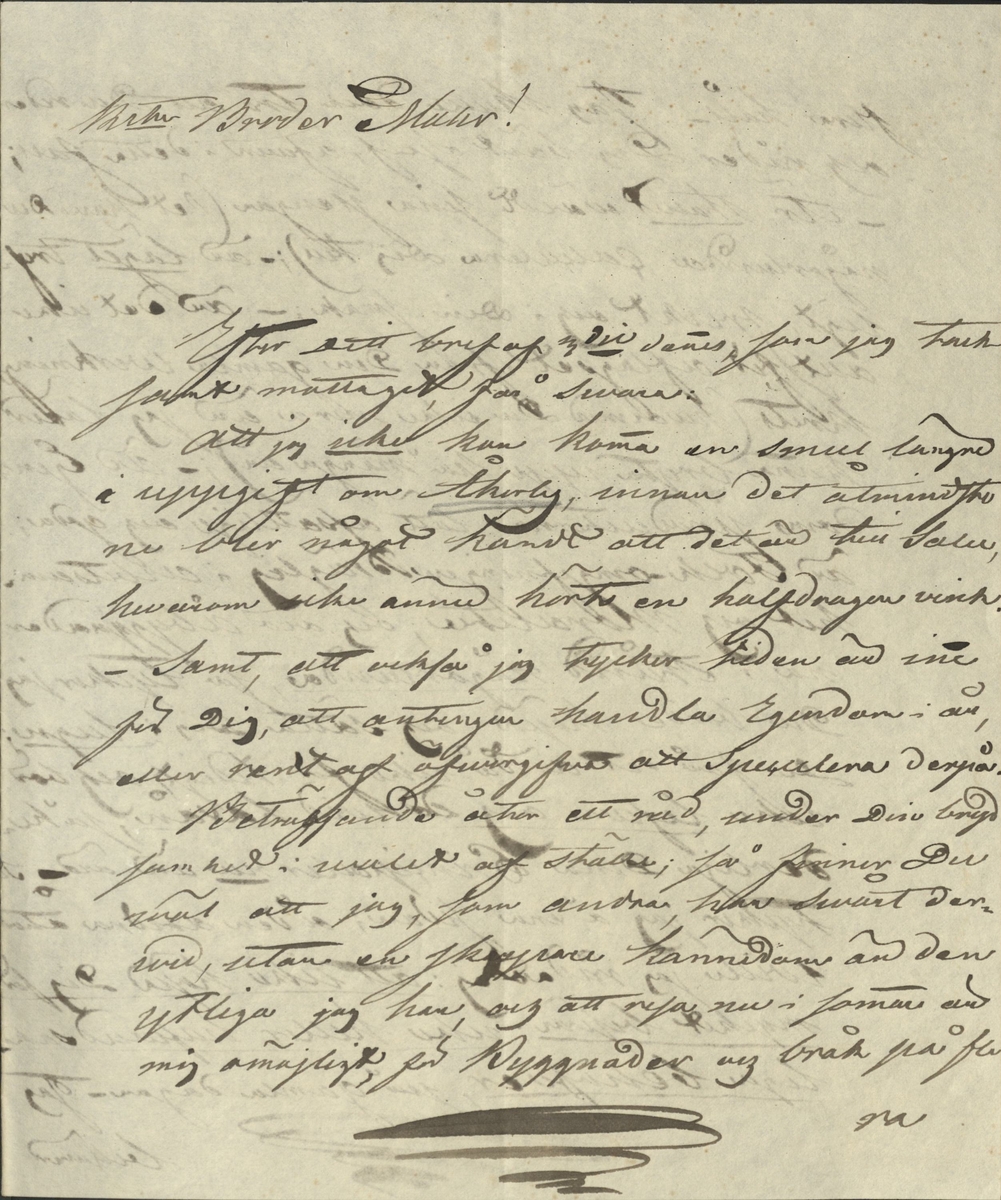 Käre Broder Maur!
Efter ditt bref af 3die dennes, som jag tack
samt mottagit, får svara:
Att jag icke kan komma en smul längre
i uppgift om Åkerby, innan det åtminsto
ne blir något kändt att det är till Salu,
hvarom icke ännu hörts en halfdragen vink.
– Samt, att ocksså jag tycker tiden är inne
för Dig, att antingen handla Egendom i år,
eller rent af öfvergifva att Speculera derpå.
Beträffande åter ett råd, under Din bryd
samhet i valet af ställe; så finner Du
väl att jag, som andra, har svårt der-
vid, utan en skarpare kännedom än den
ytliga jag har, och att resa nu i sommar är
mig omöjligt, för Byggnader och bråk på fle
ra